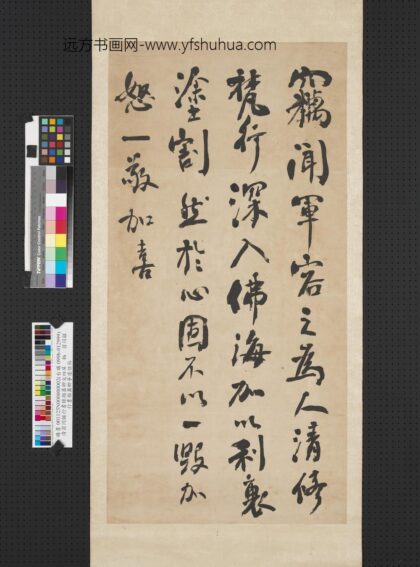 远方书画网-www.yfshuhua.com
竊聞軍容之為人清修
梵行深入佛海加以利衰
塗割然於心固不以一毀加
怒一敬加喜